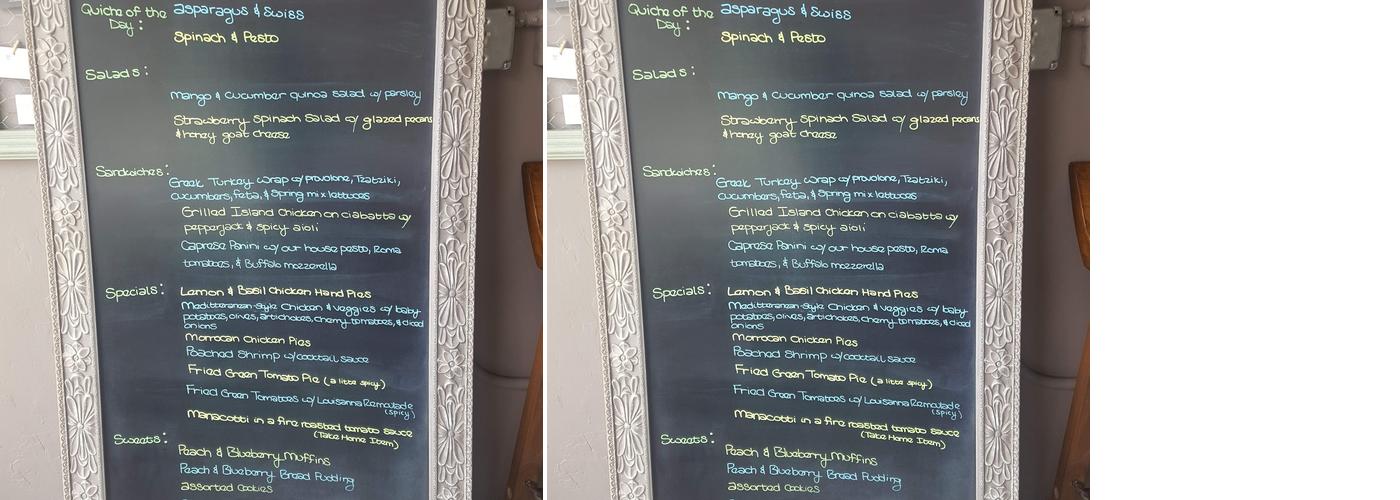 Quiche of the Day: asparagus & Swiss
Spinach & Pesto
Salads:
Mango & Cucumber quinoa salad w/ parsley
Strawberry Spinach Salad w/ glazed pecans
& honey goat cheese
Sandwiches:
Greek Turkey wrap w/ provolone, Tzatziki,
cucumbers, feta, & Spring mix lettuces
Grilled Island Chicken on ciabatta w/
pepperjack & spicy aioli
Caprese Panini w/ our house pesto, Roma
tomatoes, & Buffalo mozzerella
Specials: Lemon & Basil Chicken Hand Pies
Mediterranean-Style Chicken & veggies w/ baby
potatoes, olives, artichokes, cherry tomatoes, & diced
onions
Morrocan Chicken Pies
Poached Shrimp w/ cocktail sauce
Fried Green Tomato Pie (a little spicy)
Fried Green Tomatoes w/ Louisanna Remulade
(spicy)
Manacotti in a fire roasted tomato sauce
(Take Home Item)
Sweets:
Peach & Blueberry Muffins
Peach & Blueberry Bread Pudding
assorted Cookies
Quiche of the Day: asparagus & Swiss
Spinach & Pesto
Salads:
Mango & Cucumber quinoa salad w/ parsley
Strawberry Spinach Salad w/ glazed pecans
& honey goat cheese
Sandwiches:
Greek Turkey wrap w/ provolone, Tzatziki,
cucumbers, feta, & Spring mix lettuces
Grilled Island Chicken on ciabatta w/
pepperjack & spicy aioli
Caprese Panini w/ our house pesto, Roma
tomatoes, & Buffalo mozzerella
Specials: Lemon & Basil Chicken Hand Pies
Mediterranean-Style Chicken & veggies w/ baby
potatoes, olives, artichokes, cherry tomatoes, & diced
onions
Morrocan Chicken Pies
Poached Shrimp w/ cocktail sauce
Fried Green Tomato Pie (a little spicy)
Fried Green Tomatoes w/ Louisanna Remulade
(spicy)
Manacotti in a fire roasted tomato sauce
(Take Home Item)
Sweets:
Peach & Blueberry Muffins
Peach & Blueberry Bread Pudding
assorted Cookies